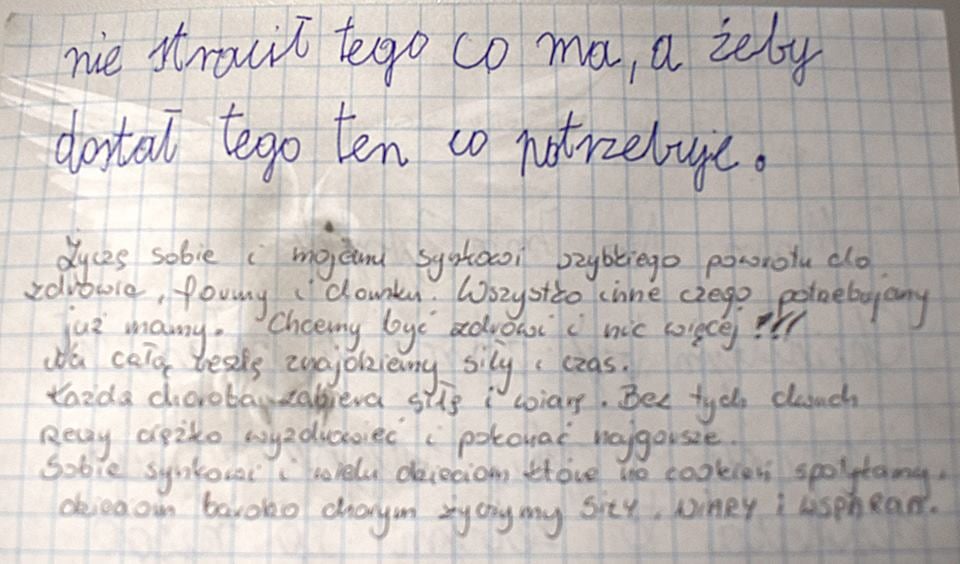 nie stracił tego co ma, a żeby
dostał tego ten co potrzebuje.
Życzę sobie i mojemu synkowi szybkiego powrotu do
zdrowia, formy i domku. Wszystko inne czego potrzebujemy
już mamy. Chcemy być zdrowi i nic więcej!!!
Na całą resztę znajdziemy siły i czas.
Każda choroba zabiera siłę i wiarę. Bez tych dwuch
Rzeczy ciężko wyzdrowieć i pokonać najgorsze.
Sobie synkowi i wielu dzieciom które na codzień spotykamy.
dzieciom bardzo chorym życzymy SIŁY, WIARY i